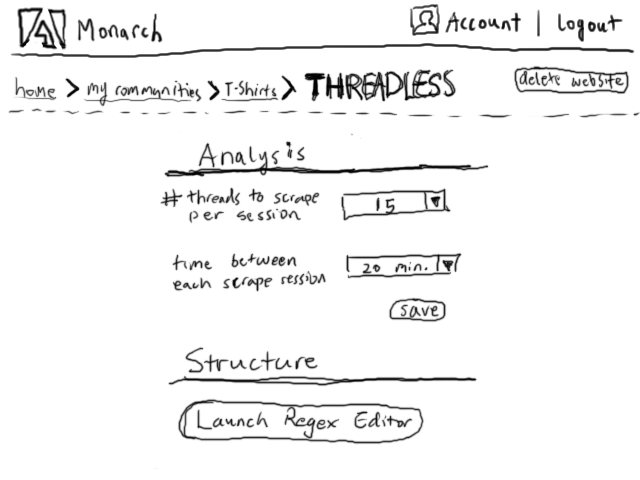 Monarch
Account | Logout
home > my communities > T-Shirts > THREADLESS
delete website
Analysis
# threads to scrape
per session
15
time between
each scrape session
20 min.
save
Structure
Launch Regex Editor